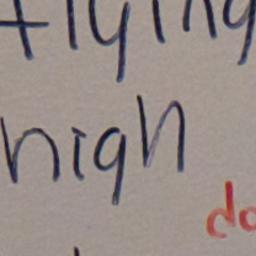 flying
high
do